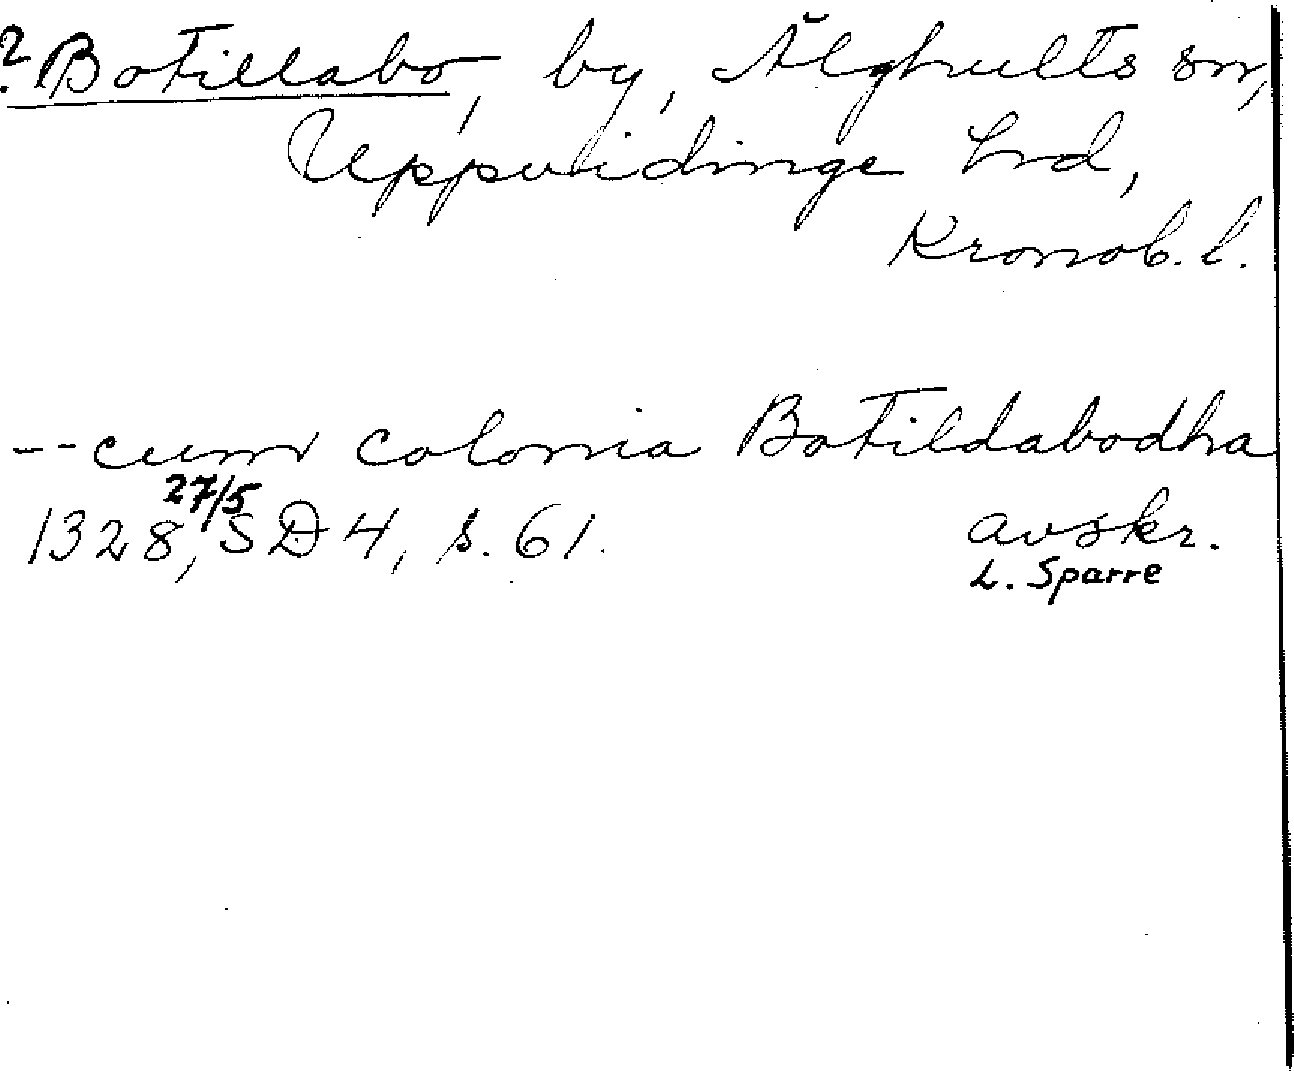 ? Botillabo, by, Älghults sn,
Uppvidinge hd,
Kronob. l.
-- cum colonia Botildabodha
1328, 27/5 SD 4, s. 61. avskr.
L. Sparre